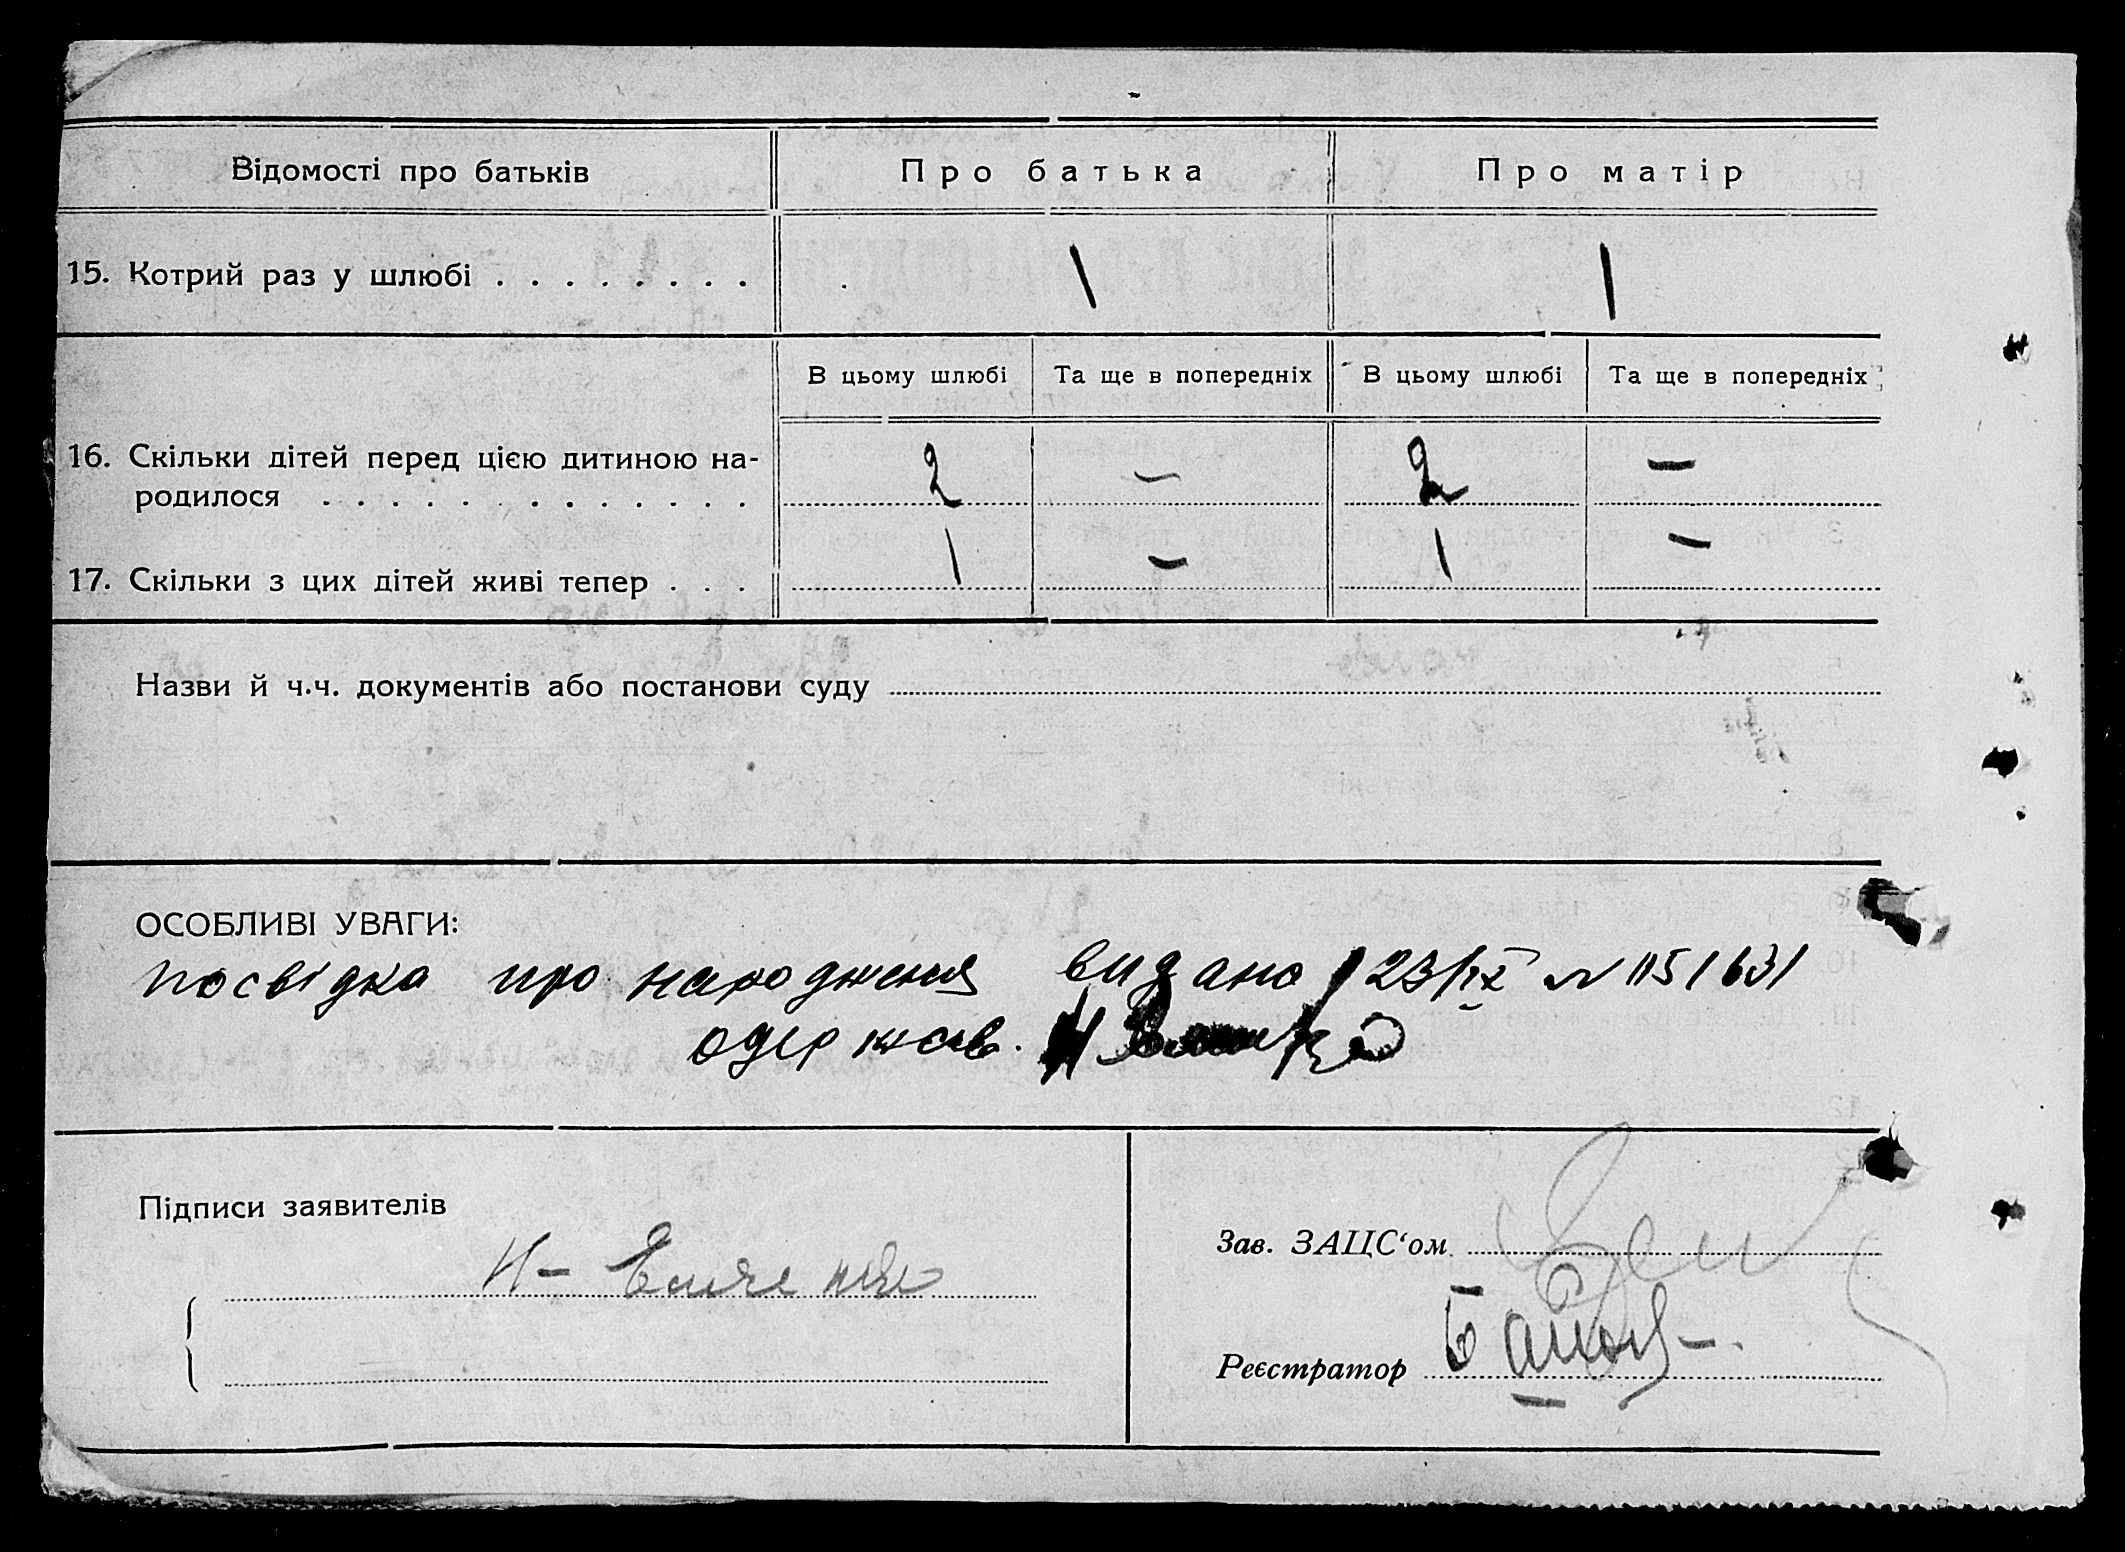 Відомості про батьків Про батька Про матір
15. Котрий раз у шлюбі . . . . . . . . 1 1
В цьому шлюбі Та ще в попередніх В цьому шлюбі Та ще в попередніх
16. Скільки дітей перед цією дитиною на-
родилося . . . . . . . . . . . . . 2 — 2 —
17. Скільки з цих дітей живі тепер . . . 1 — 1 —
Назви й ч.ч. документів або постанови суду
ОСОБЛИВІ УВАГИ:
посвідка про народження видано 23/IX № 1151631
одержав.
Підписи заявителів
Зав. ЗАЦС‘ом
Реєстратор